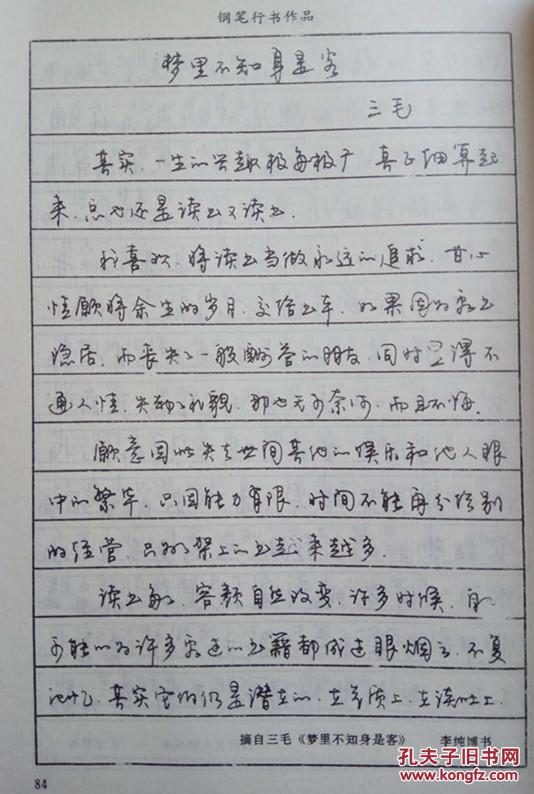 钢笔行书作品
梦里不知身是客
三毛
其实，一生的兴趣极多极广，真正细算起
来，总也还是读书又读书。
我喜欢，将读书当做永远的追求，甘心
情愿将余生的岁月，交给书本，如果因为看书
隐居，而丧失了一般酬答的朋友，同时显得不
通人情，失却了礼貌，那也无可奈何，而且不悔。
愿意因此失去世间其他的娱乐和他人眼
中的繁华，只因能力有限，时间不能再分给别
的经营，只为了架上的书越来越多。
读书多了，容颜自然改变，许多时候，自
可能以为许多看过的书籍都成过眼烟云，不复
记忆，其实它们仍是潜在的，在气质上，在谈吐上，
摘自三毛《梦里不知身是客》 李纯博书
84
孔夫子旧书网
www.kongfz.com